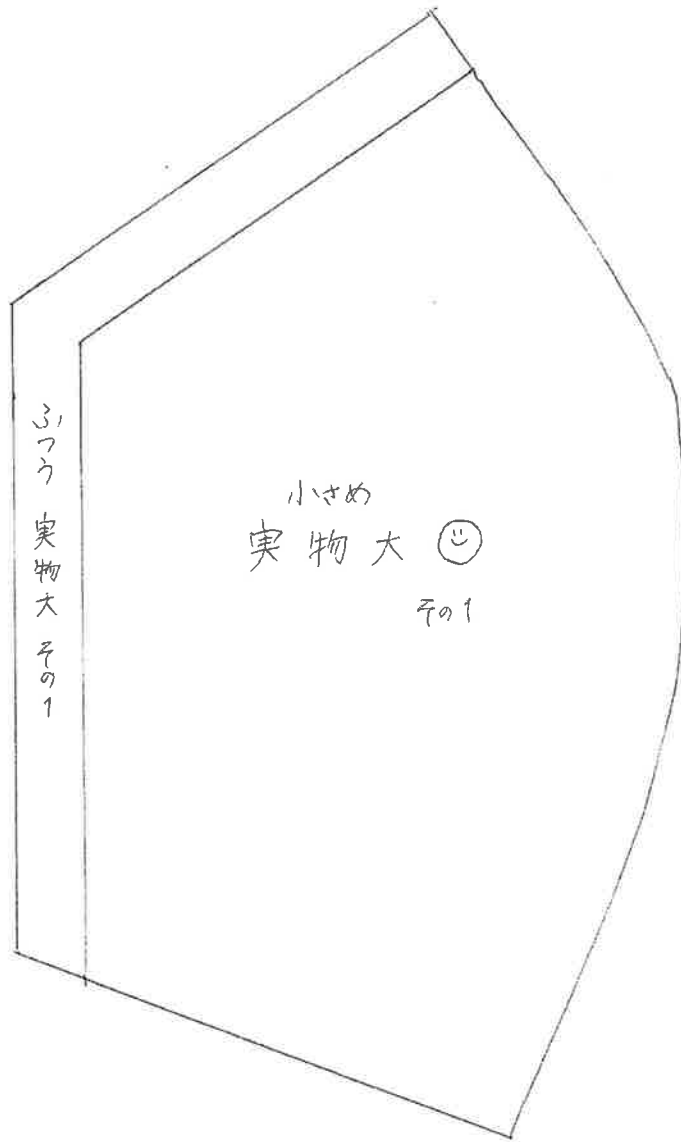 ふつう 実物大 その1
小さめ
実物大
その1